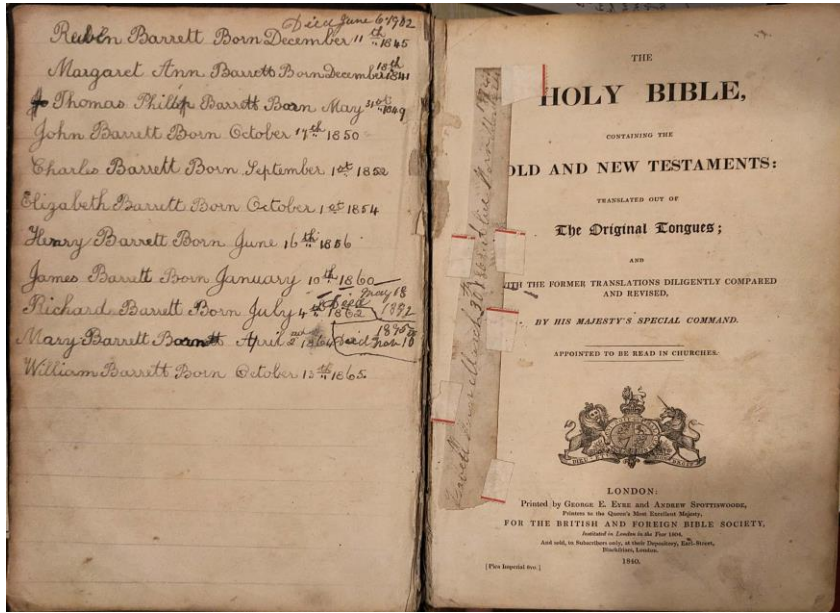 Died June 6 1902
Rubén Barrett Born December 11th 1845
Margaret Ann Barrett Born December 18th 1841
Thomas Phillip Barrett Born May 31st 1849
John Barrett Born October 17th 1850
Charles Barrett Born September 1st 1852
Elizabeth Barrett Born October 1st 1854
Henry Barrett Born June 16th 1856
James Barrett Born January 10th 1860
Richard Barrett Born July 4th 1862 Died May 18 1892
Mary Barrett April 2nd 1864 Died Nov 10 1895
William Barrett Born October 13th 1865
THE
HOLY BIBLE,
CONTAINING THE
OLD AND NEW TESTAMENTS:
TRANSLATED OUT OF
The Original Tongues;
AND
WITH THE FORMER TRANSLATIONS DILIGENTLY COMPARED
AND REVISED,
BY HIS MAJESTY'S SPECIAL COMMAND.
APPOINTED TO BE READ IN CHURCHES.
LONDON:
Printed by GEORGE E. EYRE and ANDREW SPOTTISWOODE,
Printers to the Queen's Most Excellent Majesty,
FOR THE BRITISH AND FOREIGN BIBLE SOCIETY,
Instituted in London in the Year 1804.
And sold, to Subscribers only, at their Depository, Earl-Street,
Blackfriars, London.
1840.
[Pica Imperial 8vo.]